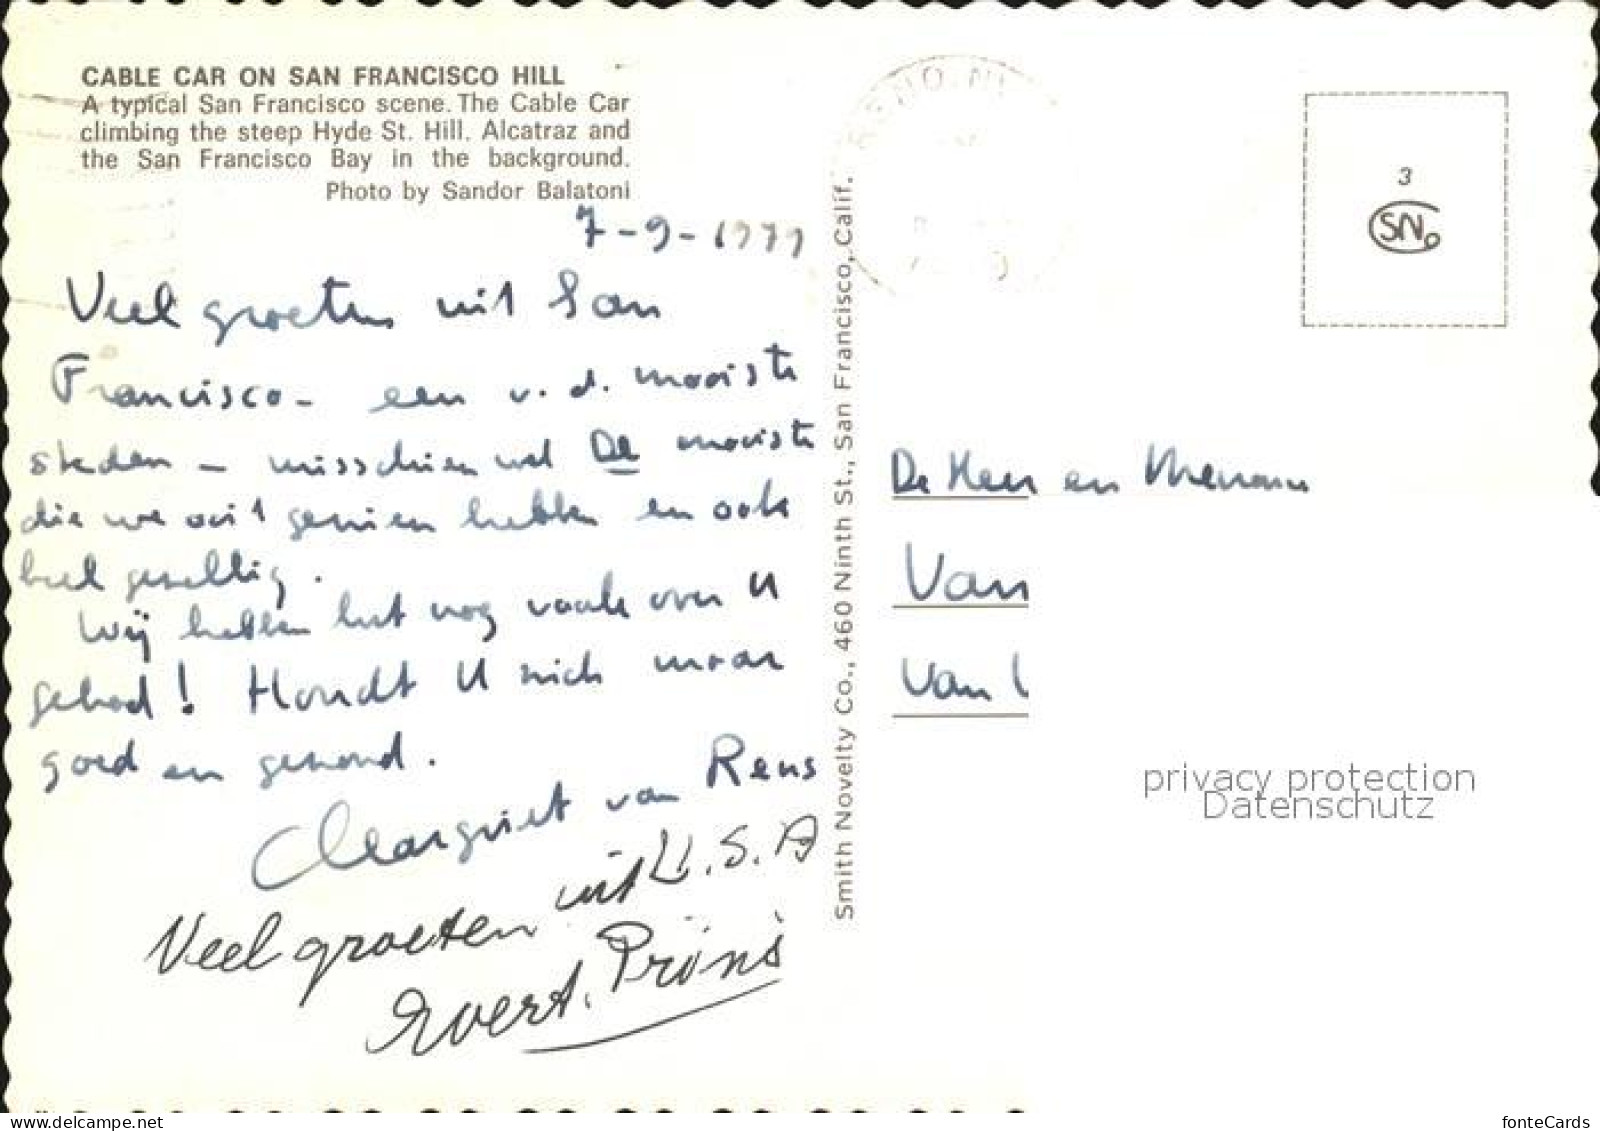 CABLE CAR ON SAN FRANCISCO HILL
A typical San Francisco scene. The Cable Car
climbing the steep Hyde St. Hill. Alcatraz and
the San Francisco Bay in the background.
Photo by Sandor Balatoni
7-9-1979
Veel groeten uit San
Francisco - een v. d. mooiste
steden - misschien wel De mooiste
die we ooit gezien hebben en ook
heel gezellig.
Wij hebben het nog vaak over U
gehad! Houdt U zich maar
goed en gezond.
Margriet van Rens
Veel groeten uit U.S.A
Evert. Pröns
Smith Novelty Co., 460 Ninth St., San Francisco, Calif.
RENO, N
3
SN
De Heer en Mevrouw
Van
Van
privacy protection
Datenschutz
www.delcampe.net
fonteCards